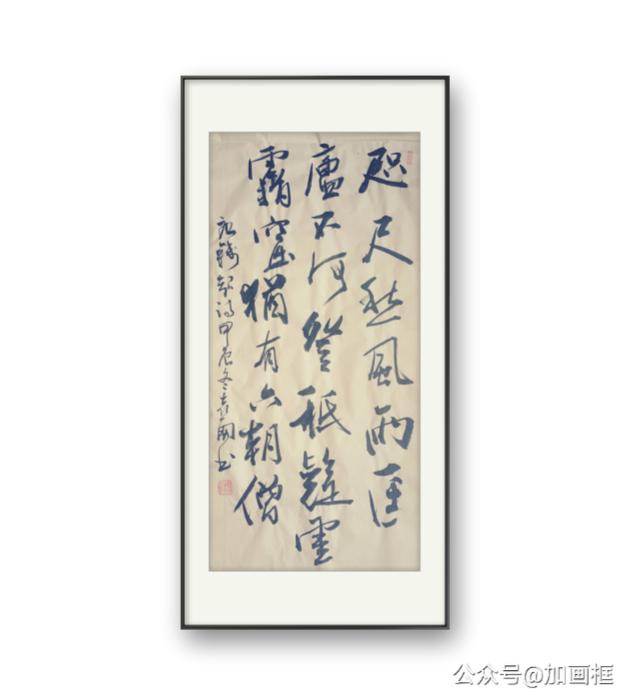 咫尺愁風雨匡
廬不可登祗疑雲
霧窟猶有六朝僧
錢起詩甲辰冬國书
公众号@加画框